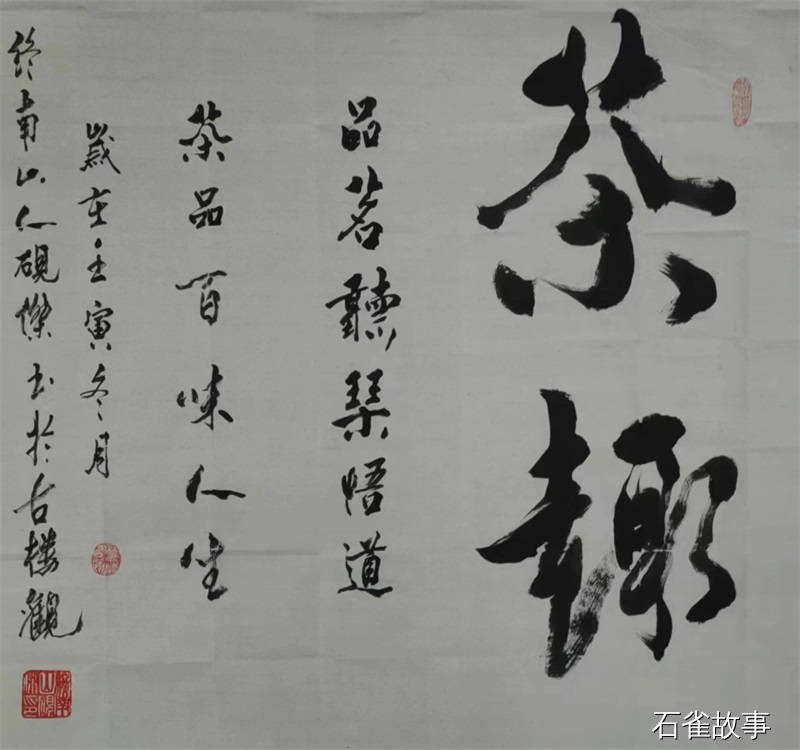 茶趣
品茗聽琴悟道
茶品百味人生
歲在壬寅冬月
終南山人硯傑书於古樓觀
石雀故事